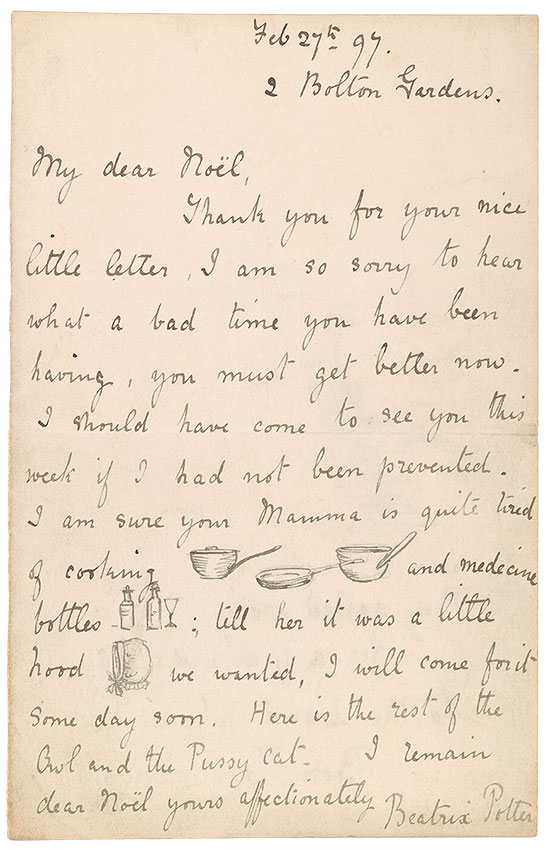 Feb 27th 97.
2 Bolton Gardens.
My dear Noël,
Thank you for your nice
little letter, I am so sorry to hear
what a bad time you have been
having, you must get better now.
I should have come to see you this
week if I had not been prevented.
I am sure your Mamma is quite tired
of cooking and medecine
bottles ; tell her it was a little
hood we wanted, I will come for it
some day soon. Here is the rest of the
Owl and the Pussy cat. I remain
dear Noël yours affectionately Beatrix Potter